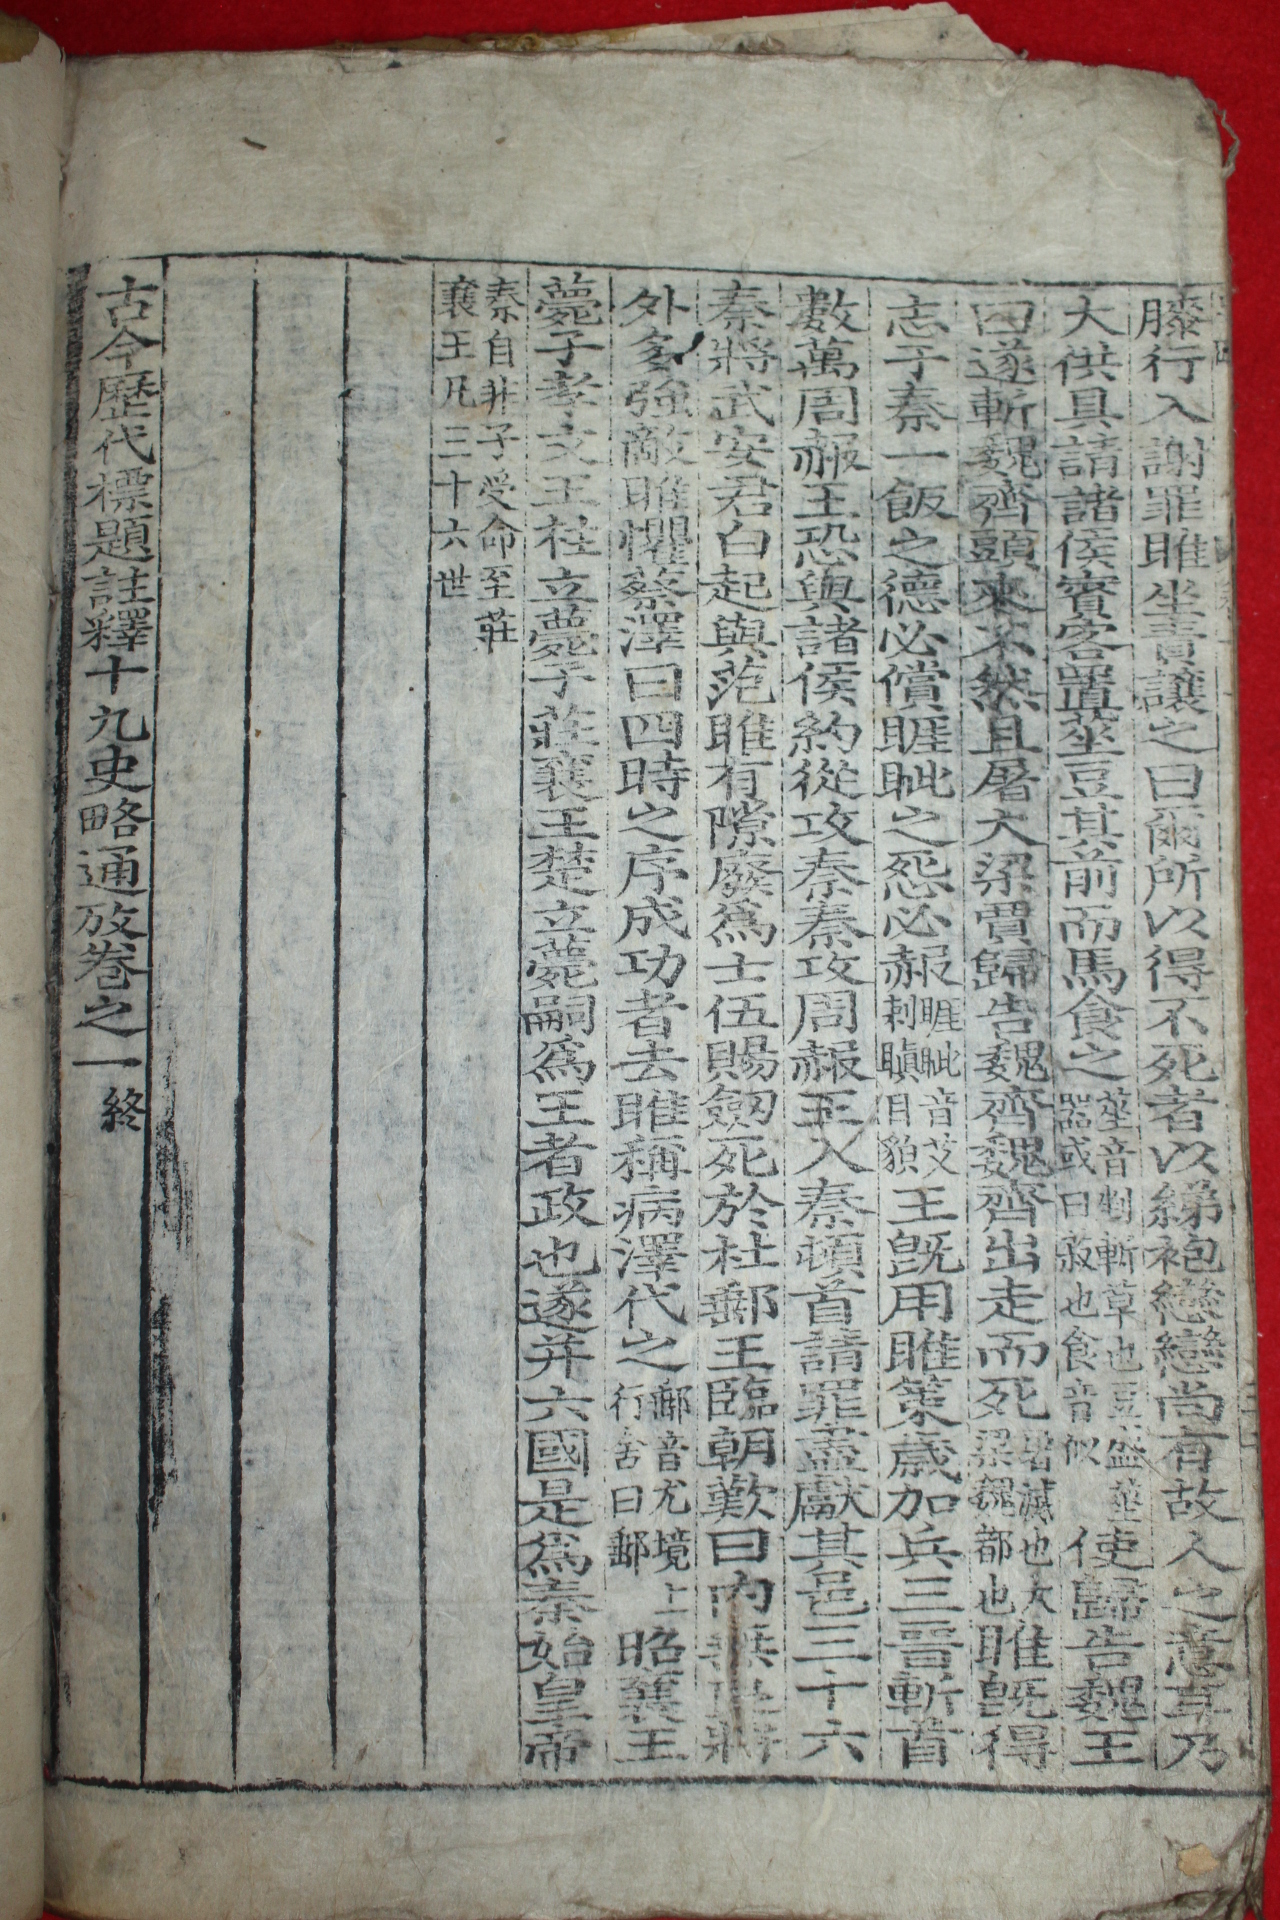 膝行入謝罪睢坐責讓之曰爾所以得不死者以綈袍戀戀尚有故人之意耳乃
大供具請諸侯賓客置莝豆其前而馬食之莝音剉斬草也豆盛莝器或曰菽也食音似使歸告魏王
曰遂斬魏齊頭來不然且屠大梁賈歸告魏齊魏齊出走而死屠滅也大梁魏都也睢旣得
志于秦一飯之德必償睚眦之怨必赧睚眦音艾刺瞋目貌王旣用睢策歲加兵三晉斬首
數萬周赧王恐與諸侯約從攻秦秦攻周赧王入秦頓首請罪盡獻其邑三十六
秦將武安君白起與范睢有隙廢爲士伍賜劔死於杜郵王臨朝歎曰內無良將
外多強敵睢懼蔡澤曰四時之序成功者去睢稱病澤代之郵音尤境上行舍曰郵昭襄王
薨子孝文王柱立薨子莊襄王楚立薨嗣爲王者政也遂并六國是爲秦始皇帝
秦自非子受命至莊
襄王凡三十六世
古今歷代標題註釋十九史略通攷卷之一終